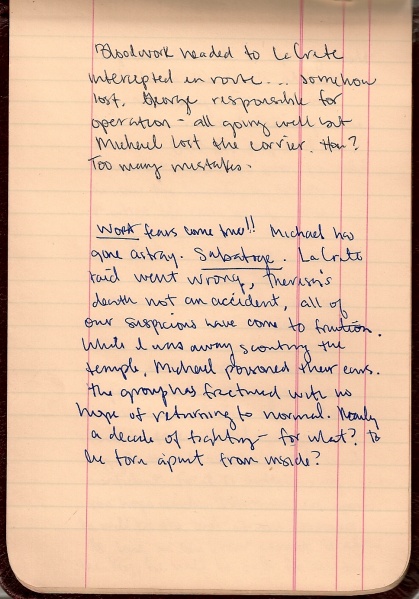 Bloodwork headed to LaCrate
intercepted en route... somehow
lost. George responsible for
operation - all going well but
Michael lost the carrier. How?
Too many mistakes.
Worst fears come true!! Michael has
gone astray. Sabatoge. LaCrate
raid went wrong, Theresa's
death not an accident, all of
our suspicions have come to fruition.
While I was away scouting the
temple, Michael poisoned their ears.
The group has fractured with no
hope of returning to normal. Nearly
a decade of fighting - for what? To
be torn apart from inside?